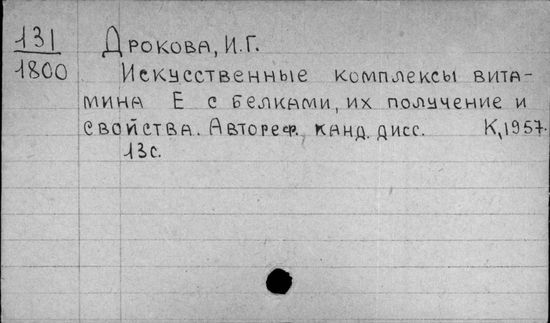 131 Дрокова, И.Г.
1800 Искусственные комплексы вита-
мина Е с белками, их получение и
свойства. Автореф. канд. дисс. К, 1957.
13с.